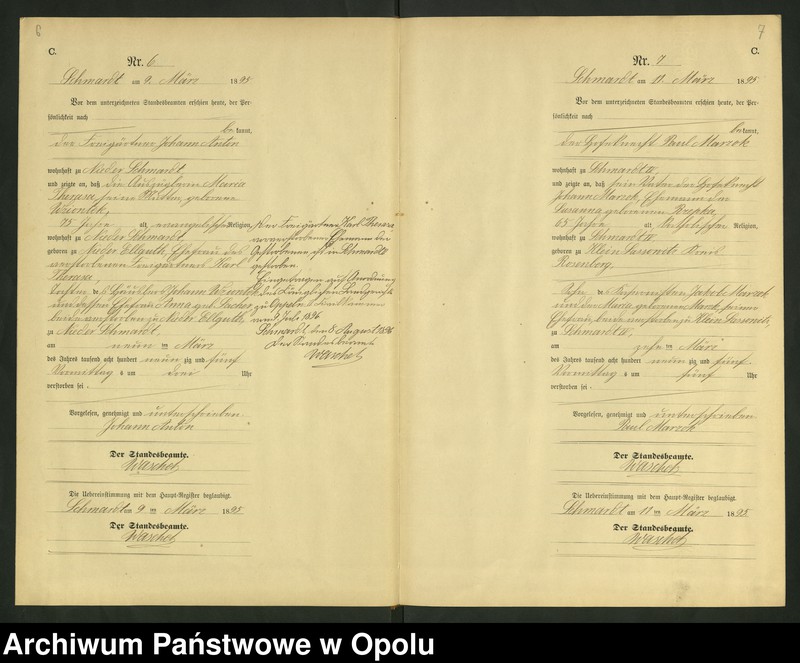 6
C.
Nr. 6
Schmardt am 9. März 1895
Vor dem unterzeichneten Standesbeamten erschien heute, der Per-
sönlichkeit nach
be kannt,
der Freigärtner Johann Anton
wohnhaft zu Nieder Schmardt
und zeigte an, daß die Auszüglerin Maria
Theresa, seine Mutter, geborene
Wziontek,
75 Jahre alt, evangelischer Religion,
wohnhaft zu Nieder Schmardt
geboren zu Nieder Ellguth, Ehefrau des
verstorbenen Freigärtners Karl
Theresa,
Tochter des Häuslers Johann Wziontek
und dessen Ehefrau Anna geb.
beide verstorben zu Nieder Ellguth,
zu Nieder Schmardt,
am neun ten März
des Jahres tausend acht hundert neun zig und fünf
Vormittag s um drei Uhr
verstorben sei.
Vorgelesen, genehmigt und unterschrieben
Johann Anton
Der Standesbeamte.
Waschek
Die Uebereinstimmung mit dem Haupt-Register beglaubigt.
Schmardt am 9 ten März 1895
Der Standesbeamte.
Waschek
Der Freigärtner Karl Theresa
vorverstorbener Ehemann der
Gestorbenen ist in Schmardt
gestorben.
Eingetragen auf Anordnung
des Königlichen Landgerichts
zu Oppeln
vom Juli 1896
Schmardt, den 8 August 1896
Der Standesbeamte
Waschek
7
C.
Nr. 7
Schmardt am 11 März 1895
Vor dem unterzeichneten Standesbeamten erschien heute, der Per-
sönlichkeit nach
be kannt,
der Hofeknecht Paul Marzok
wohnhaft zu Schmardt IV
und zeigte an, daß sein Vater der Hofeknecht
Johann Marzok, Ehemann der
Susanna geborenen Rzepka,
65 Jahre alt katholischer Religion,
wohnhaft zu Schmardt IV
geboren zu Klein Lassowitz Kreis
Rosenberg
Sohn des Jakob Marzok
und der Maria, geborenen seiner
Ehefrau, beide verstorben zu Klein Lassowitz,
zu Schmardt IV,
am zehn ten März
des Jahres tausend acht hundert neun zig und fünf
Vormittag s um fünf Uhr
verstorben sei.
Vorgelesen, genehmigt und unterschrieben
Paul Marzok
Der Standesbeamte.
Waschek
Die Uebereinstimmung mit dem Haupt-Register beglaubigt.
Schmardt am 11 ten März 1895
Der Standesbeamte.
Waschek
Archiwum Państwowe w Opolu